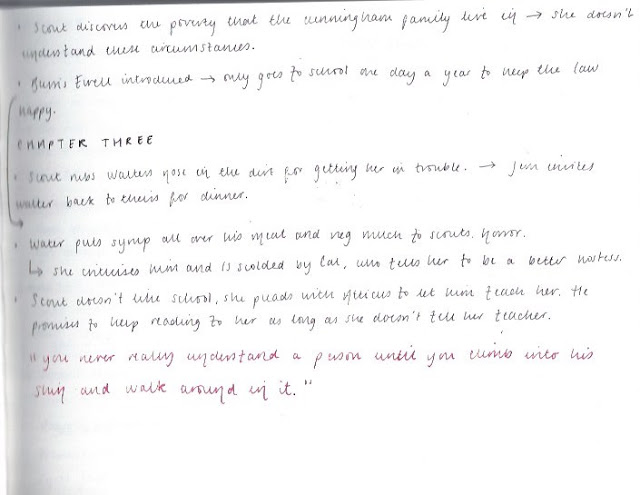 • Scout discovers the poverty that the cunningham family live in → she doesn't
understand these circumstances.
• Burris Ewell introduced → only goes to school one day a year to keep the law
happy.
CHAPTER THREE
• Scout rubs Walters nose in the dirt for getting her in trouble. → Jem invites
walter back to theirs for dinner.
• Water puts syrup all over his meat and veg much to scouts horror.
↳ she criticises him and is scolded by Cal, who tells her to be a better hostess.
• Scout doesn't like school, she pleads with Atticus to let him teach her. He
promises to keep reading to her as long as she doesn't tell her teacher.
"you never really understand a person until you climb into his
skin and walk around in it."